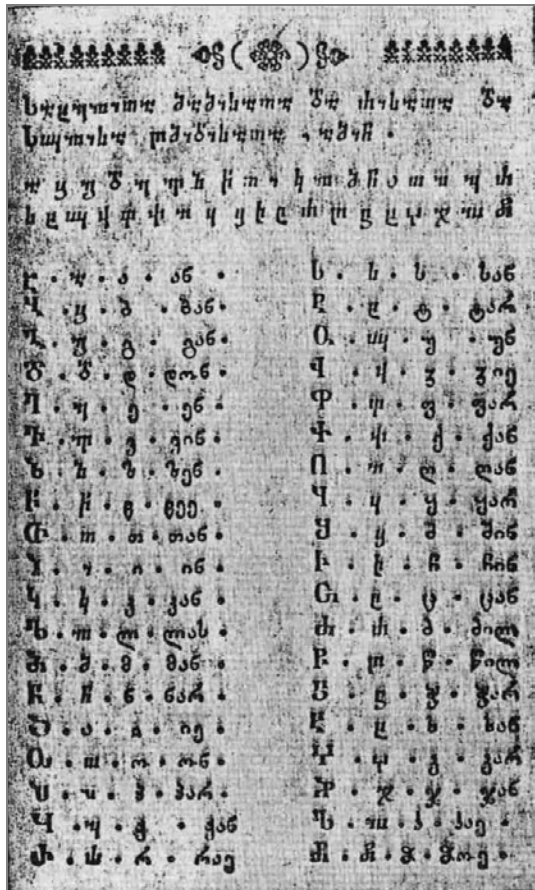 ⴑⴀⴞⴄⴊⴈⴇⴀ ⴋⴀⴋⴈⴑⴀⴇⴀ ⴃⴀ ⴛⴈⴑⴀⴇⴀ ⴃⴀ
ⴑⴓⴊⴈⴑⴀ ⴜⴋⴈⴃⴈⴑⴀⴇⴀ . ⴀⴋⴌ .
ⴀ ⴁ ⴂ ⴃ ⴄ ⴅ ⴆ ⴡ ⴇ ⴈ ⴉ ⴊ ⴋ ⴌ ⴢ ⴍ ⴎ ⴏ ⴐ
ⴑ ⴒ ⴓ ⴣ ⴔ ⴕ ⴖ ⴗ ⴘ ⴙ ⴚ ⴛ ⴜ ⴝ ⴞ ⴤ ⴟ ⴠ ⴥ
Ⴀ . ⴀ . ა . ან .
Ⴁ . ⴁ . ბ . ბან .
Ⴂ . ⴂ . გ . გან .
Ⴃ . ⴃ . დ . დონ .
Ⴄ . ⴄ . ე . ენ .
Ⴅ . ⴅ . ვ . ვინ .
Ⴆ . ⴆ . ზ . ზენ .
Ⴡ . ⴡ . ჱ . ჱეე .
Ⴇ . ⴇ . თ . თან .
Ⴈ . ⴈ . ი . ინ .
Ⴉ . ⴉ . კ . კან .
Ⴊ . ⴊ . ლ . ლას .
Ⴋ . ⴋ . მ . მან .
Ⴌ . ⴌ . ნ . ნარ .
Ⴢ . ⴢ . ჲ . იე .
Ⴍ . ⴍ . ო . ონ .
Ⴎ . ⴎ . პ . პარ .
Ⴏ . ⴏ . ჟ . ჟან
Ⴐ . ⴐ . რ . რაე
Ⴑ . ⴑ . ს . სან
Ⴒ . ⴒ . ტ . ტარ
Ⴓ . ⴓ . უ . უნ
Ⴣ . ⴣ . ჳ . ჳიე
Ⴔ . ⴔ . ფ . ფარ
Ⴕ . ⴕ . ქ . ქან
Ⴖ . ⴖ . ღ . ღან
Ⴗ . ⴗ . ყ . ყარ
Ⴘ . ⴘ . შ . შინ
Ⴙ . ⴙ . ჩ . ჩინ
Ⴚ . ⴚ . ც . ცან
Ⴛ . ⴛ . ძ . ძილ
Ⴜ . ⴜ . წ . წილ
Ⴝ . ⴝ . ჭ . ჭარ
Ⴞ . ⴞ . ხ . ხან
Ⴤ . ⴤ . ჴ . ჴარ
Ⴟ . ⴟ . ჯ . ჯან
Ⴠ . ⴠ . ჰ . ჰაე .
Ⴥ . ⴥ . ჵ . ჵოე .